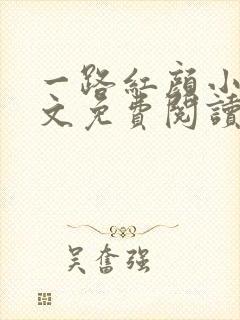 一路红颜小
文免费阅读
吴奋强